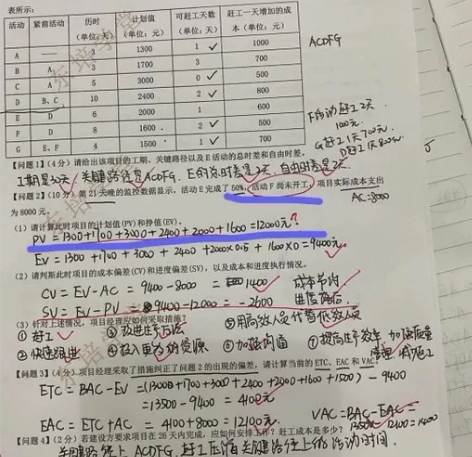 表所示：
活动 紧前活动 历时（单位：天） 计划值（单位：元） 可赶工天数（单位：天） 赶工一天增加的成本（单位：元）
A — 3 1300 1 ✓ 1000
B A 3 1700 3 700
C A 5 3000 0 ✓ 500
D B、C 10 2400 2 ✓ 800
E D 6 2000 1 600
F D 8 1600 2 ✓ 500
G E、F 4 1500 1 ✓ 700
ACDFG
F活动赶工2天
1000元
G赶工1天700元
【问题1】(4分) 请给出该项目的工期、关键路径以及E活动的总时差和自由时差。
工期是30天 关键路径是ACDFG. E的总时差是2天. 自由时差是2天.
【问题2】(10分) 第21天晚的监控数据显示，活动E完成了50%，活动F尚未开工，项目实际成本支出
为8000元。
AC=8000
(1) 请计算此时项目的计划值(PV)和挣值(EV)。
PV=1300+1700+3000+2400+2000+1600=12000元?
EV=1300+1700+3000+2400+2000×0.5+1600×0=9400元
(2) 请判断此时项目的成本偏差(CV)和进度偏差(SV)，以及成本和进度执行情况。
CV=EV-AC=9400-8000=1400 成本节约
SV=EV-PV=9400-12000=-2600 进度落后
(3) 针对上述情况，项目经理应如何采取措施？
① 赶工 ③ 改进生产方法 ⑤ 用高效人员代替低效人员
② 快速跟进 ④ 投入更多的资源 ⑥ 加强沟通 ⑦ 提高生产效率
【问题3】(4分) 项目经理采取了措施纠正了问题2的出现的偏差，请计算当前的ETC、EAC和VAC
ETC=BAC-EV=(1300+1700+3000+2400+2000+1600+1500)-9400
=13500-9400=4100元
EAC=ETC+AC=4100+8000=12100元.
VAC=BAC-EAC=
【问题4】(2分) 若建设方要求项目在26天内完成，应如何安排工作？赶工成本是多少？
关键路径上ACDFG，赶工压缩关键路径上的活动时间.